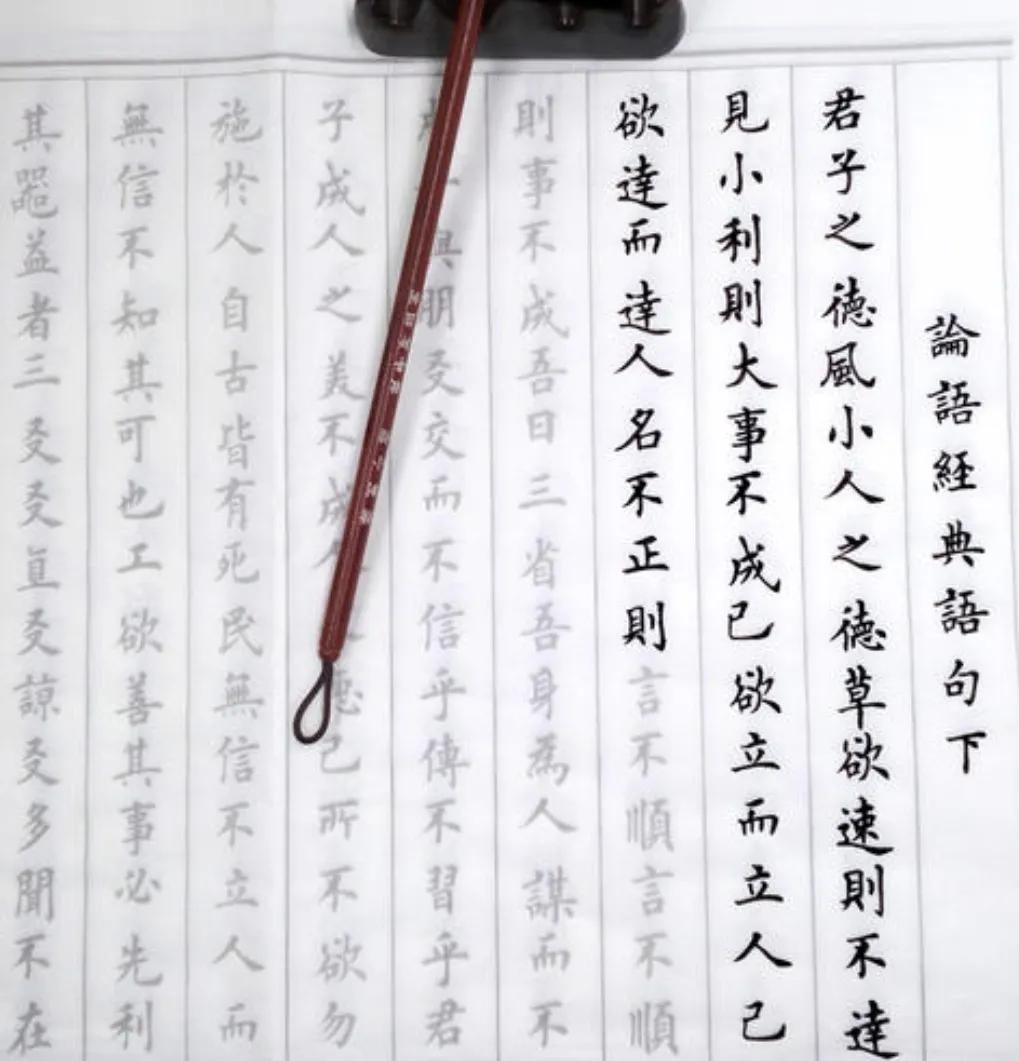 論語經典語句下
君子之德風小人之德草欲速則不達
見小利則大事不成己欲立而立人己
欲達而達人名不正則言不順言不順
則事不成吾日三省吾身為人謀而不
朋友交而不信乎傳不習乎君
子成人之美不成己所不欲勿
施於人自古皆有死民無信不立人而
無信不知其可也工欲善其事必先利
其器益者三友友直友諒友多聞不在